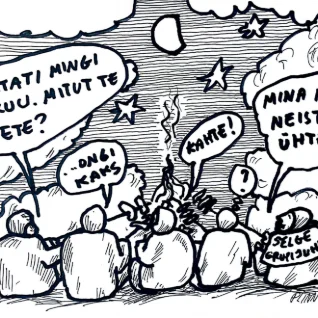 TATI MINGI
KUU. MITUT TE
ETE?
...ONGI
KAKS
KAHTE!
?
MINA
NEIST
ÜHT
SELGE